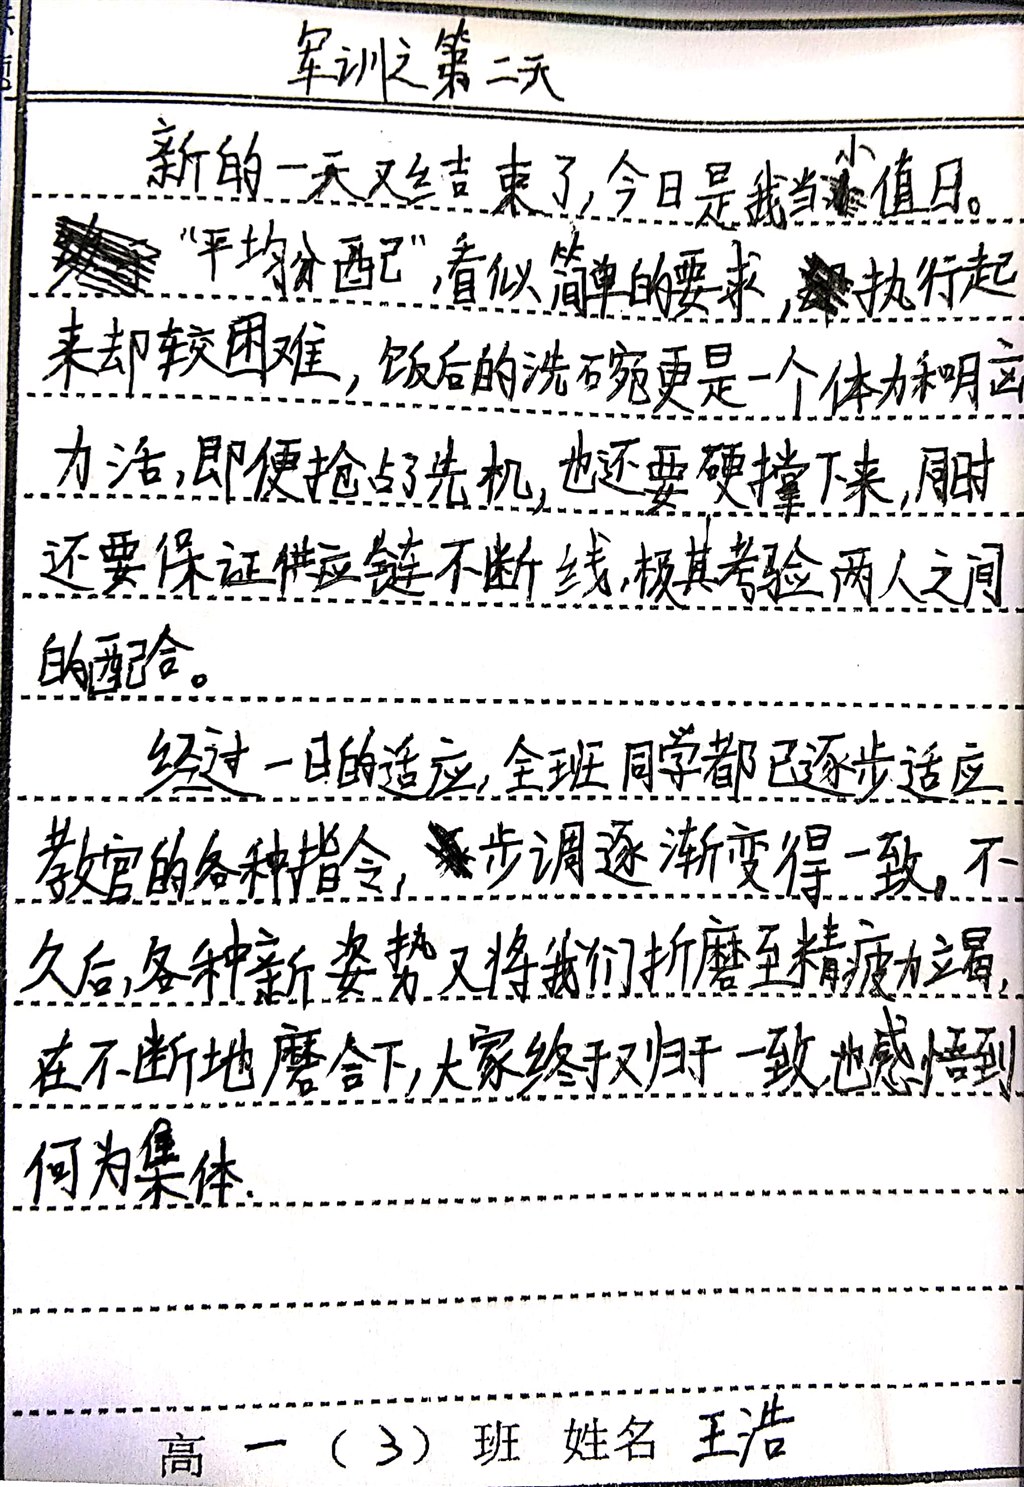 军训之第二天
新的一天又结束了,今日是我当小值日。
“平均分配”,看似简单的要求,执行起
来却较困难,饭后的洗碗更是一个体力和
力活,即便抢占了先机,也还要硬撑下来,同时
还要保证供应链不断线,极其考验两人之间
的配合。
经过一日的适应,全班同学都已逐步适应
教官的各种指令,步调逐渐变得一致。不
久后,各种新姿势又将我们折磨至精疲力竭,
在不断地磨合下,大家终于又归于一致,也感悟到
何为集体.
高一(3)班 姓名 王浩